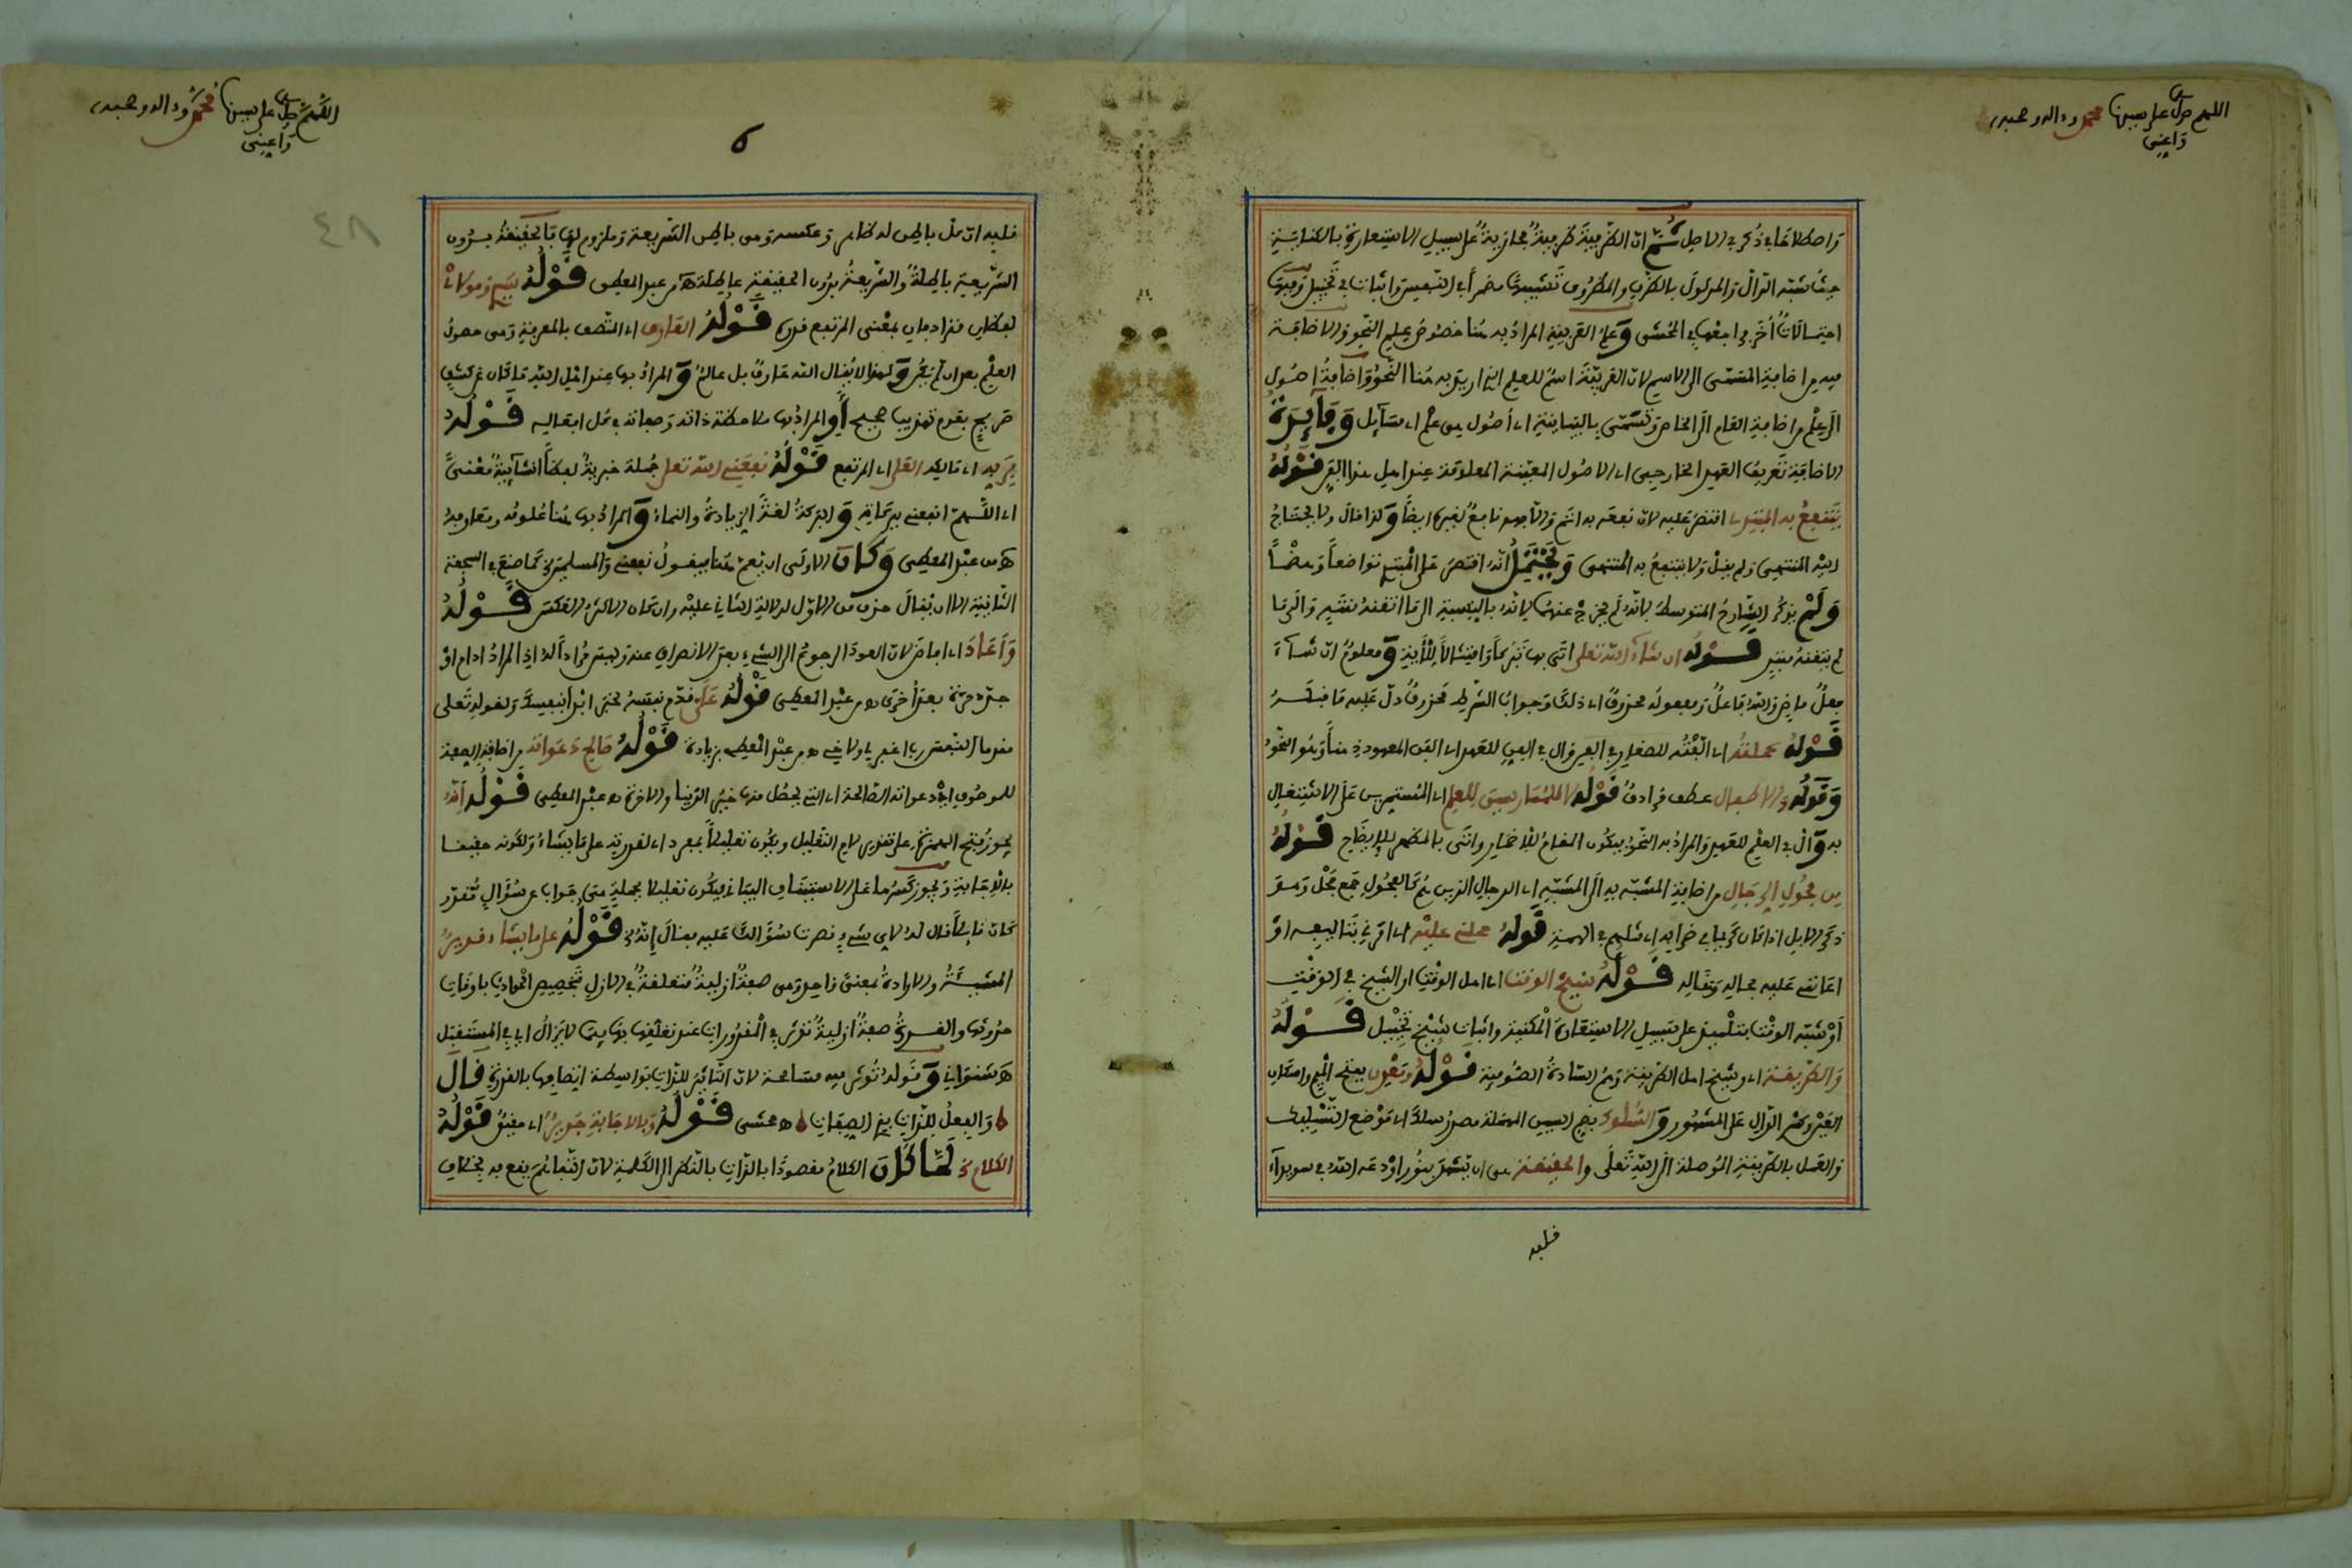 اللهم صل على سيدنا محمد وءاله وصحبه
واصطلاحا ما ذكره الاصل ثم ان الظرفية ظرفية مجازية على سبيل الاستعارة بالكناية
حيث شبه الدال والمدلول بالظرف والمظروف تشبيها مضمرا في النفس واثبات في تخييل وفيها
احتمالات أخر راجعها في المحشى وعلم العربية المراد به هنا خصوص علم النحو والاضافة
فيه من اضافة المسمى الى الاسم لان العربية اسم للعلم الذي اريد به هنا النحو واضافة اصول
الى علم من اضافة العام الى الخاص وتسمى بالبيانية اي أصول هي علم اي مسائل وفايدة
الاضافة تعريف العهد الخارجي اي الاصول المعينة المعلومة عند اهل هذا الفن قوله
ينتفع به المبتدي اقتصر عليه لان نفعه به اتم والا فهو نافع لغيره ايضا وكذا قال ولا يحتاج
اليه المنتهي ولم يقل ولا ينتفع به المنتهي ويحتمل انه اقتصر على المبتدي تواضعا وهضما
ولم يذكر الشارح المتوسط لانه لم يخرج عنهما لانه بالنسبة الى ما اتقنه منته والى ما
لم يتقنه مبتد قوله ان شاء الله تعلى اتى بها تبركا وامتثالا للأية ومعلوم ان شاء
فعل ماض والله فاعل ومفعوله محذوف اي ذلك وجواب الشرط محذوف دل عليه ما قبله
قوله عملته اي الفته للصغار في الفن وال في الفن للعهد اي الفن المعهود هنا وهو النحو
وقوله والاطفال عطف مرادف قوله للممارسين للعلم اي المستمرين على الاشتغال
به وال في العلم للعهد والمراد به النحو فيكون المقام للاضمار واتى بالمظهر للايضاح قوله
من فحول الرجال من اضافة المشبه به الى المشبه اي الرجال الذين هم كالفحول جمع فحل وهو
ذكر الابل اذا كان كريما في ضرابه اي مثلهم في الهمة قوله حملني عليه اي امرني بتاليفه او
اعانني عليه بحاله ومقاله قوله شيخ الوقت اي اهل الوقت او الشيخ في الوقت
أو شبه الوقت بتلميذ على سبيل الاستعارة المكنية واثبات شيخ تخييل قوله
والطريقة اي وشيخ اهل الطريقة وهم السادة الصوفية قوله ومعدن بفتح الميم واسكان
العين وكسر الدال على المشهور والسلوك بضم السين المهملة مصدر سلك اي موضع التسليك
والعمل بالطريقة الموصلة الى الله تعلى والحقيقة هي ان تشهد بنور اودعه الله في سويداء
قلبه
اللهم صل على سيدنا محمد وءاله وصحبه
٤٨
قلبه ان كل باطن له ظاهر وعكسه وهي باطن الشريعة وملزوم لها بالحقيقة بدون
الشريعة باطلة والشريعة بدون الحقيقة عاطلة هـ من عبد المعطي قوله سيدي ومولانا
لفظان مترادفان بمعنى المرتفع قدره قوله العارف اي المتصف بالمعرفة وهي حصول
العلم بعد ان لم يكن ولهذا لا يقال الله عارف بل عالم والمراد بها عند اهل الله ما كان عن كشف
صريح بقدم تهذيب صحيح أو المراد بها ملاحظة ذاته وصفاته في كل افعاله قوله
فريد اي مالكه العلي اي المرتفع قوله نفعني الله تعلى جملة خبرية لفظا انشائية معنى
اي اللهم انفعني ببركاته والبركة لغة الزيادة والنماء والمراد بها هنا علومه ومعارفه
هـ من عبد المعطي وكان الاولى ان يعم هنا فيقول نفعني والمسلمين كما صنع في السجعة
الثانية الا ان يقال حذف من الاول لدلالة الثاني عليه وان كان الاكثر العكس قوله
وأعاد اي افاض لان العود الرجوع الى الشيء بعد الانصراف عنه وليس مرادا له اذ المراد ادام او
جدد مرة بعد أخرى هـ من عبد المعطي قوله علي قدم نفسه لخبر ابدأ بنفسك ولقوله تعلى
قوله صالح دعواته من اضافة الصفة
للموصوف اي دعواته الصالحة اي التي يحصل منها خير الدنيا والاخرة هـ عبد المعطي قوله انه
يجوز فتح الهمزة على تقدير لام التعليل ويكون تعليلا بمفرد اي لقدرته على ما يشاء ولكونه حقيقا
بالاجابة ويجوز كسرها على الاستيناف البياني فيكون تعليلا بجملة هي جواب عن سؤال مقدر
كان قائلا قال له لاي شيء قصرت سؤالك عليه فقال إنه قوله على ما يشاء قدير
المشيئة والارادة بمعنى واحد وهي صفة ازلية متعلقة في الازل بتخصيص الحوادث باوقات
حدوثها والقدرة صفة ازلية تؤثر في المقدورات عند تعلقها بها فيما لا يزال اي في المستقبل
هـ شنواني وقوله تؤثر فيه مسامحة لان التاثير للذات بواسطة اتصافها بالقدرة قال
والفعل للذات بذي الصفات هـ محشي قوله وبالاجابة جدير اي حقيق قوله
الكلام لما كان الكلام مقصودا بالذات بالنظر الى الكلمة لان التفاهم يقع به بخلاف